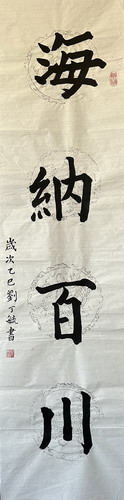 海納百川
歲次乙巳劉丁毓書